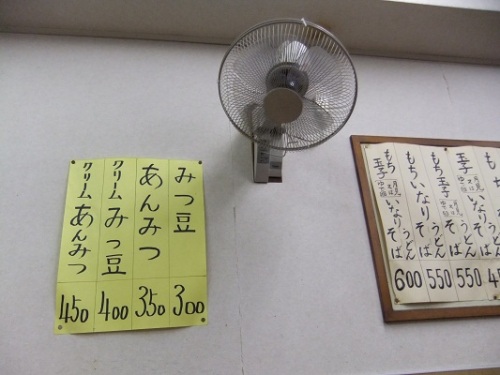 みつ豆 300
あんみつ 350
クリームみつ豆 400
クリームあんみつ 450
もち
玉子 そば 550
もち うどん
もちいなりそば 550
もち うどん
玉子 いなりそば 600